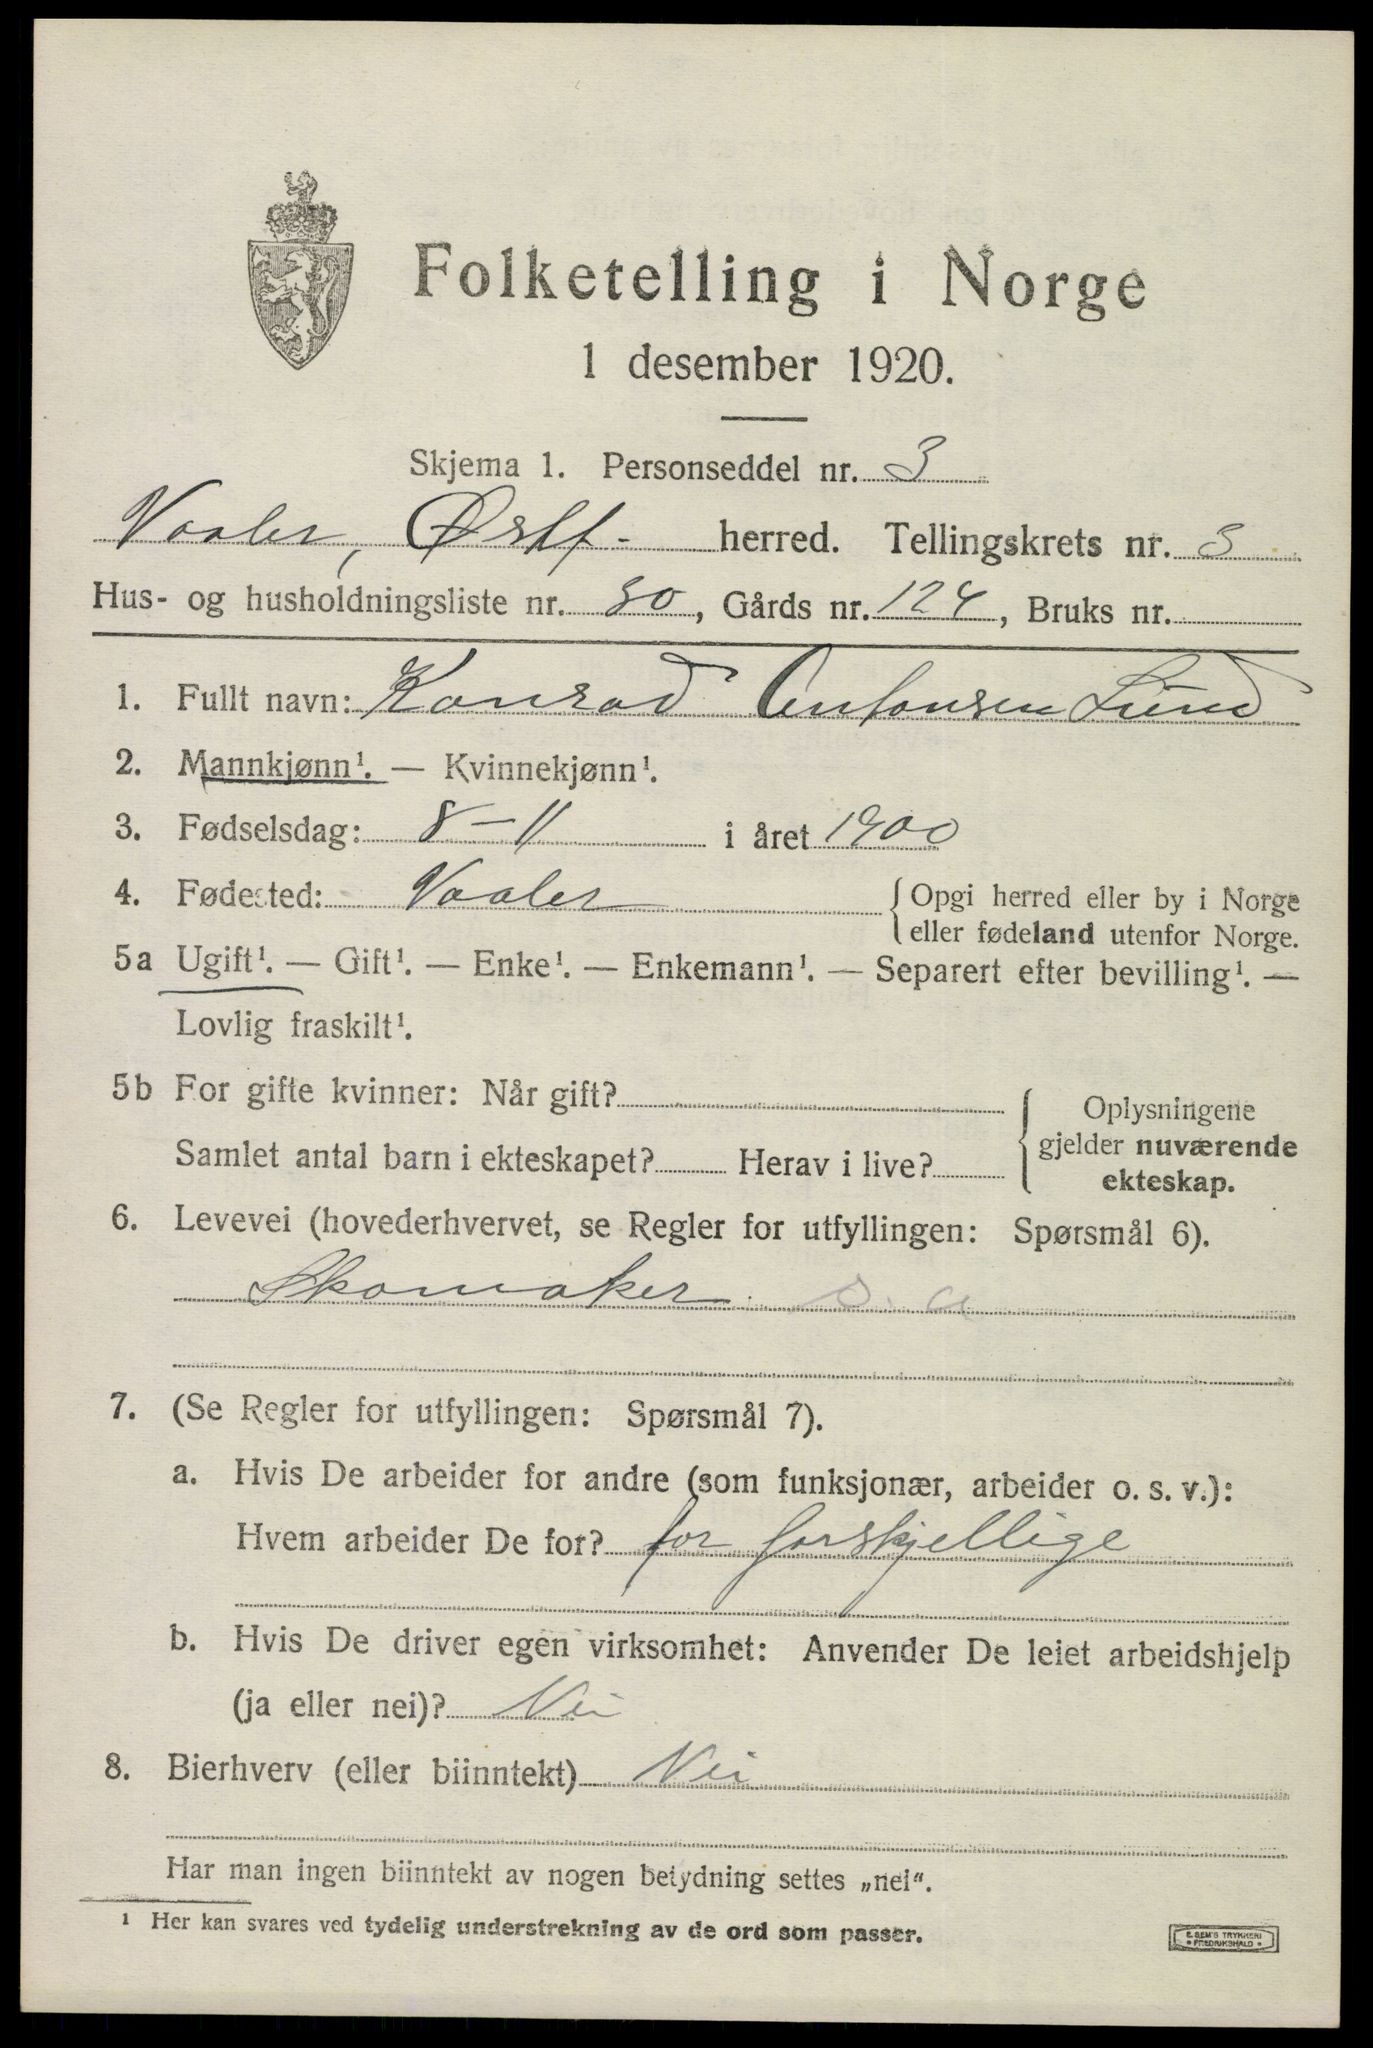 Folketelling i Norge
1 desember 1920.
Skjema 1. Personseddel nr. 3
Vaaler, Østf. herred. Tellingskrets nr. 3
Hus- og husholdningsliste nr. 30, Gårds nr. 124, Bruks nr.
1. Fullt navn: Konrad Antonsen Lund
2. Mannkjønn¹. — Kvinnekjønn¹.
3. Fødselsdag: 8-11 i året 1900
4. Fødested: Vaaler { Opgi herred eller by i Norge
eller fødeland utenfor Norge.
5a Ugift¹. — Gift¹. — Enke¹. — Enkemann¹. — Separert efter bevilling¹. —
Lovlig fraskilt¹.
5b For gifte kvinner: Når gift?
Samlet antal barn i ekteskapet? Herav i live? { Oplysningene
gjelder nuværende
ekteskap.
6. Levevei (hovederhvervet, se Regler for utfyllingen: Spørsmål 6).
Skomaker s. a
7. (Se Regler for utfyllingen: Spørsmål 7).
a. Hvis De arbeider for andre (som funksjonær, arbeider o. s. v.):
Hvem arbeider De for? for forskjellige
b. Hvis De driver egen virksomhet: Anvender De leiet arbeidshjelp
(ja eller nei)? Nei
8. Bierhverv (eller biinntekt) Nei
Har man ingen biinntekt av nogen betydning settes „nei“.
¹ Her kan svares ved tydelig understrekning av de ord som passer.
E. SEM'S TRYKKERI
• FREDRIKSHALD •